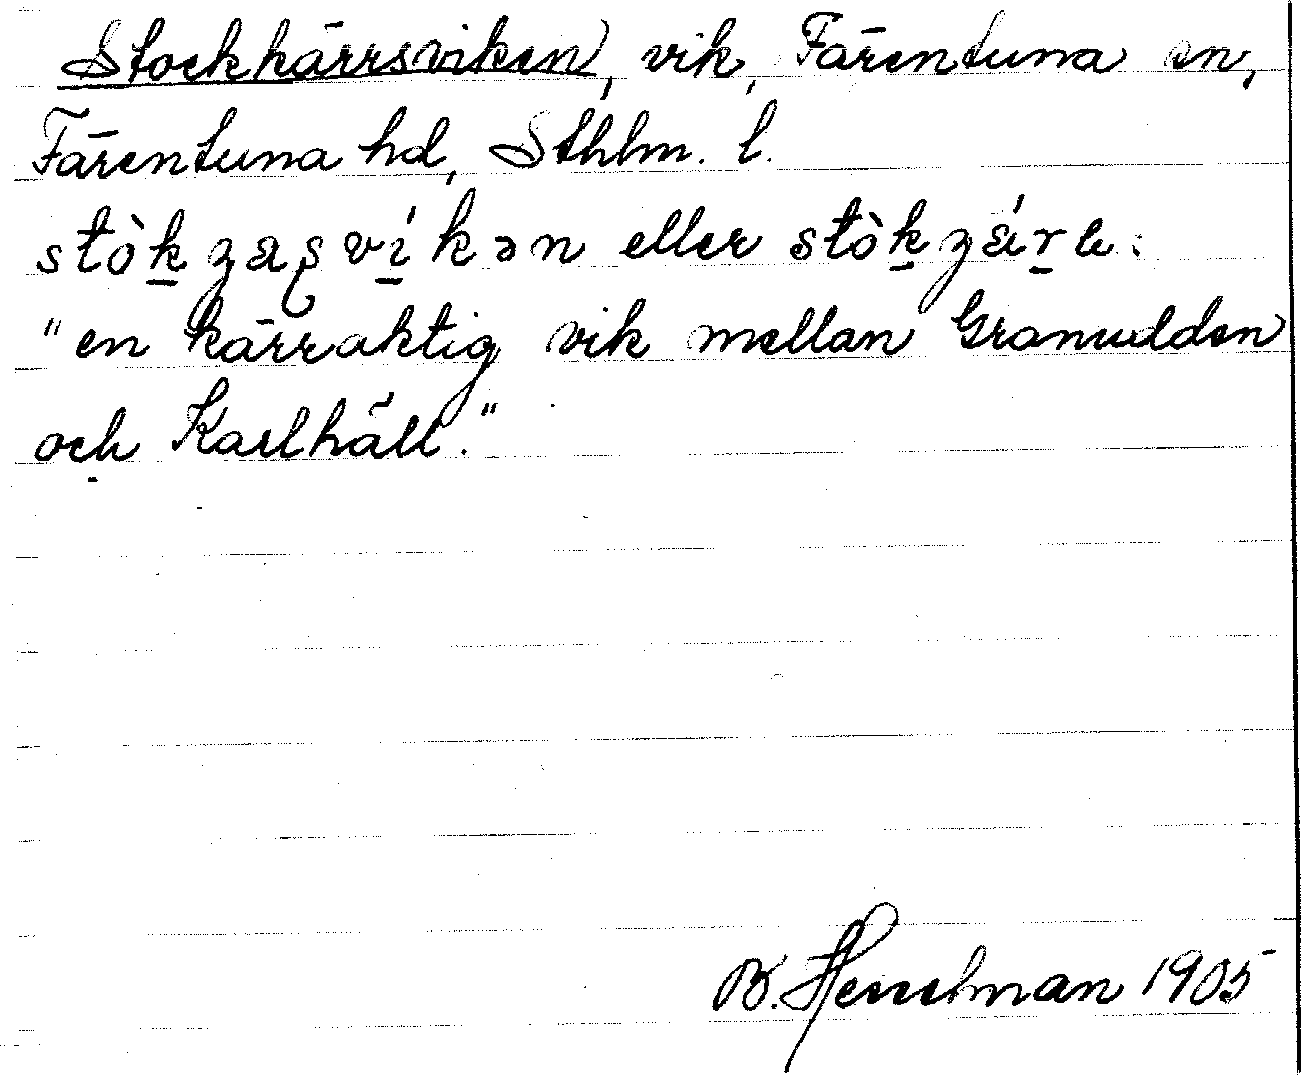 Stockkärrsviken, vik, Färentuna sn,
Färentuna hd, Sthlm. l.
eller
"en kärraktig vik mellan Granudden
och Karlhäll."
B. Hesselman 1905